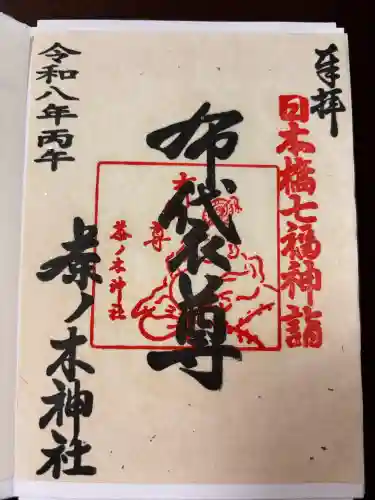 奉拝
日本橋七福神詣
布袋尊
布
尊
茶ノ木神社
茶ノ木神社
令和八年丙午